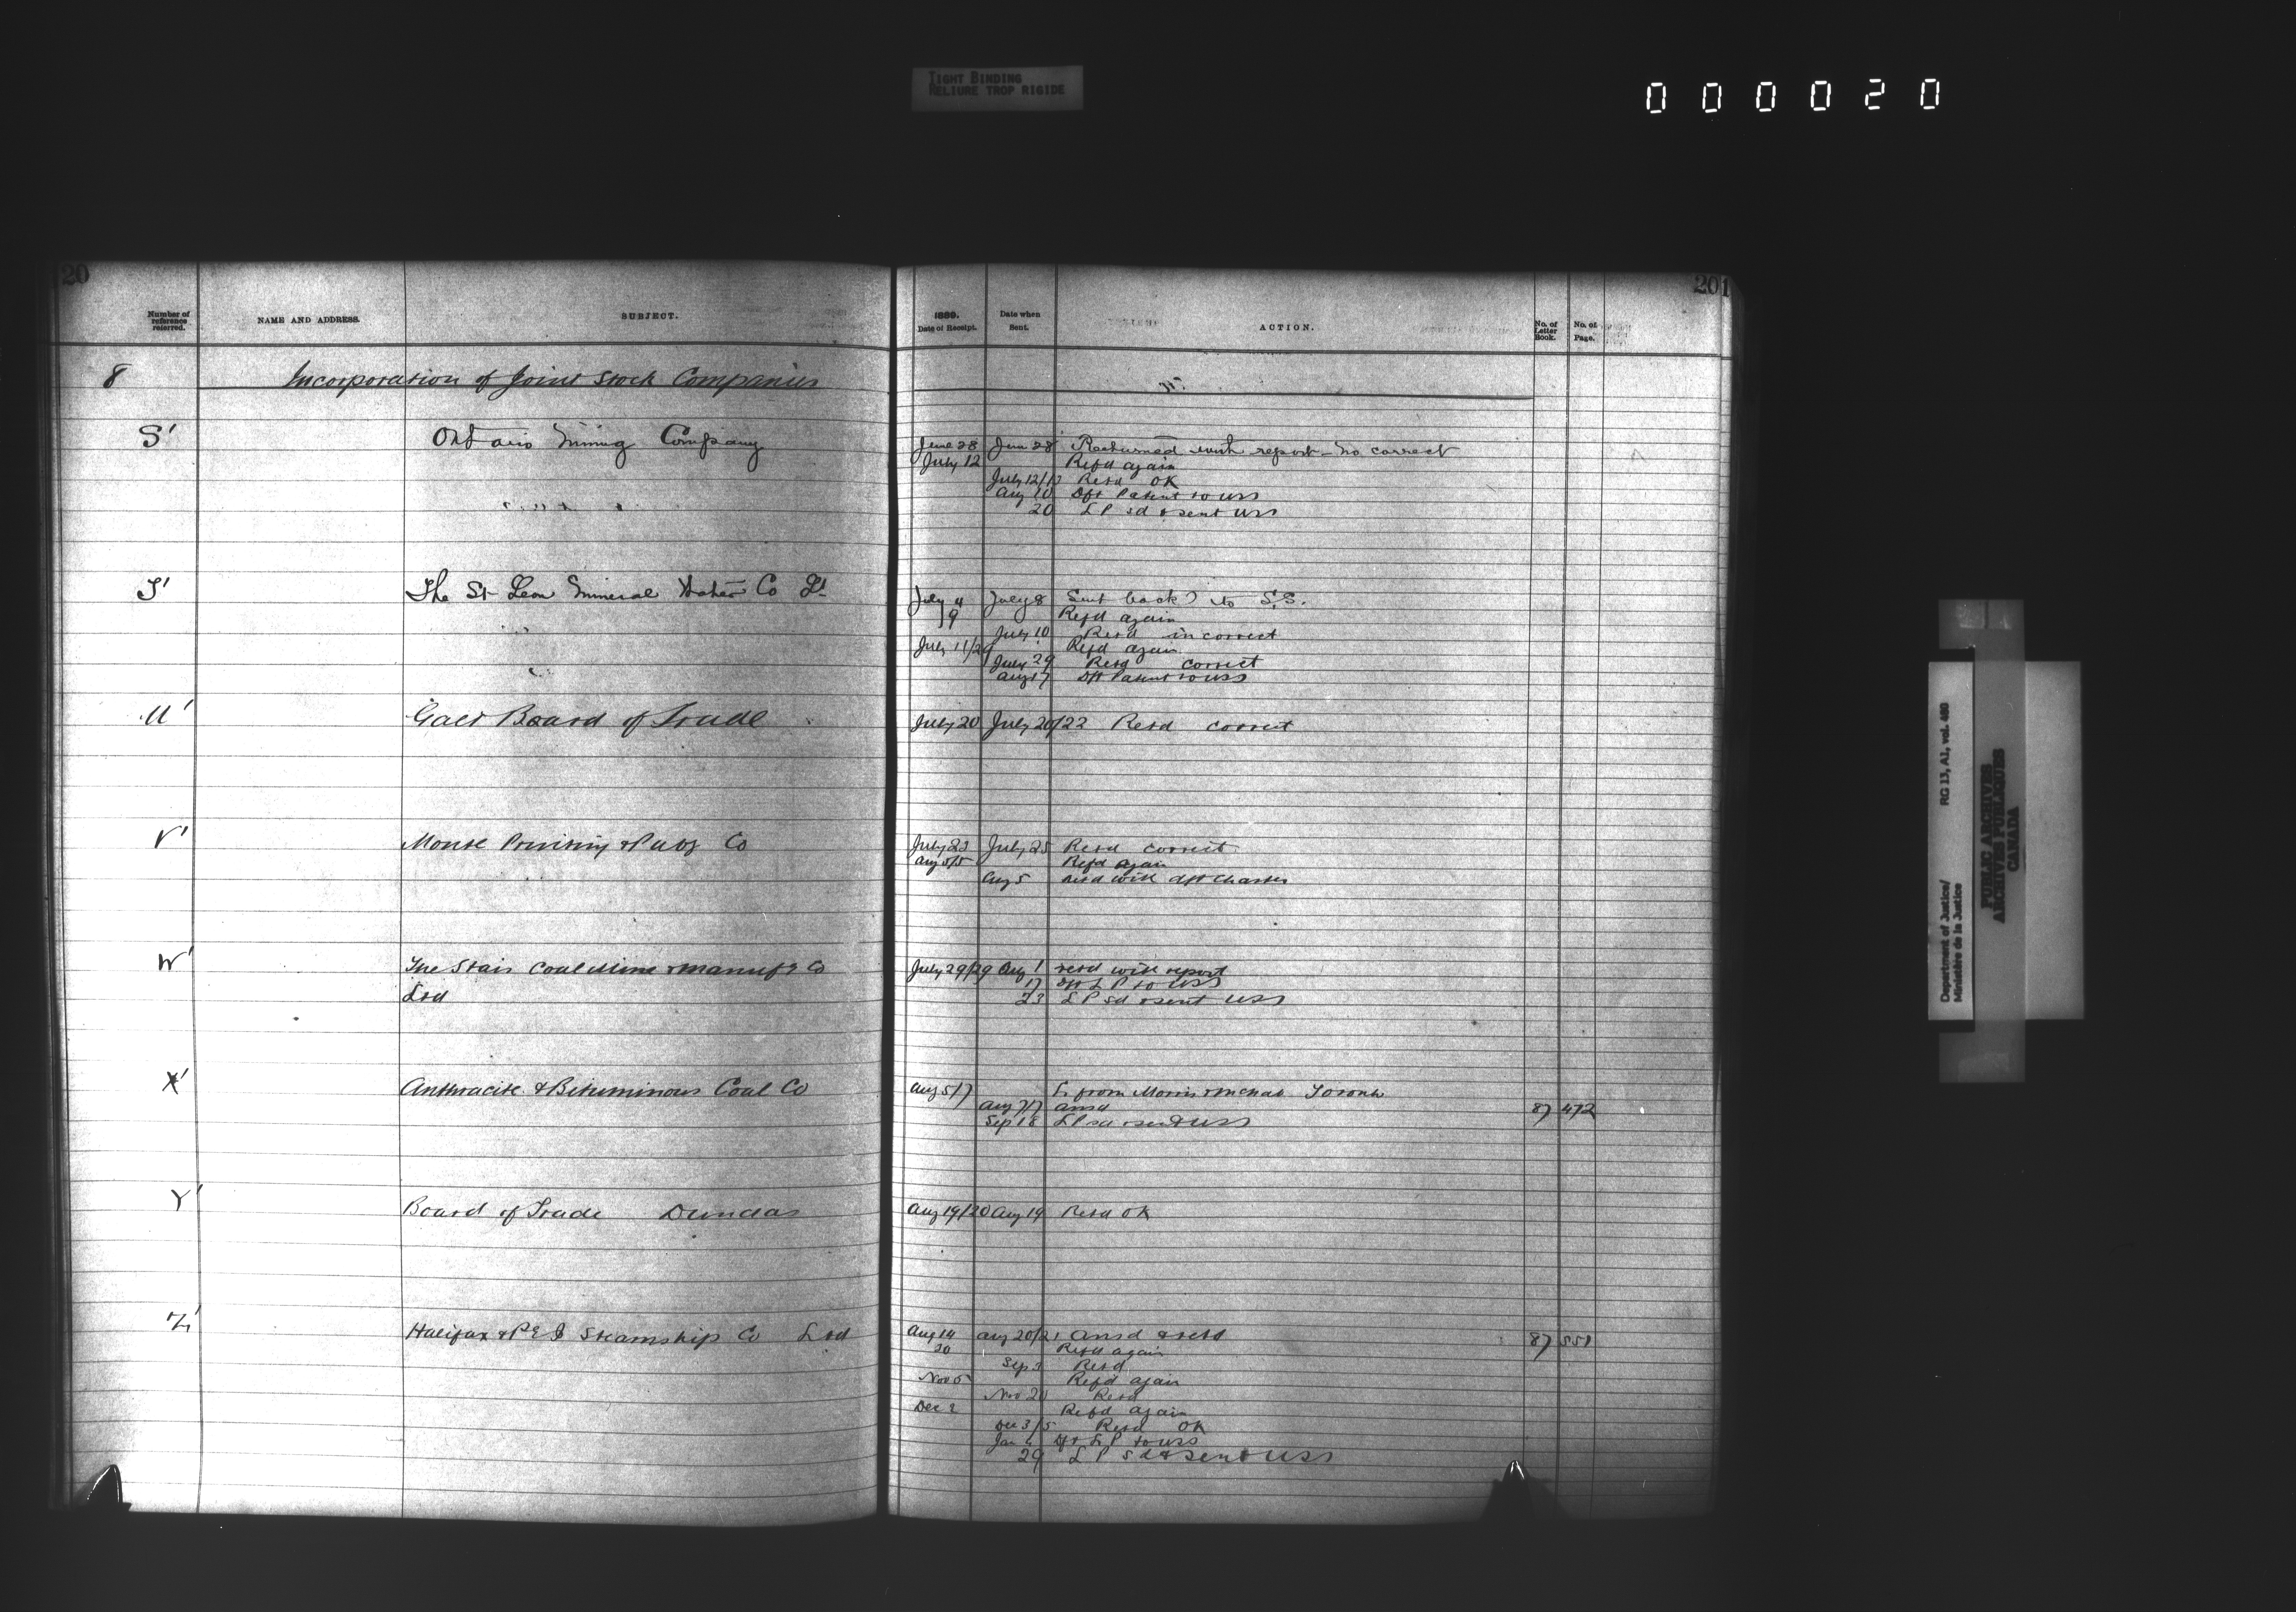 TIGHT BINDING
RELIURE TROP RIGIDE
000020
20
201
Number of reference referred.
NAME AND ADDRESS.
SUBJECT.
1889.
Date of Receipt.
Date when Sent.
ACTION.
No. of Letter Book.
No. of Page.
8 Incorporation of Joint Stock Companies
S' Ontario Mining Company June 28 June 28 Returned with report - no correct
July 12 Refd again
July 12/13 Retd OK
Aug 10 Dft Patent to USS
20 L P sd & sent USS
T' The St Leon Mineral Water Co Ld July 4 July 8 Sent back to S.S.
9 Refd again
July 10 Retd incorrect
July 11/29 Refd again
July 29 Retd correct
Aug 17 Dft Patent to USS
U' Galt Board of Trade July 20 July 20/22 Retd correct
V' Printing & Co July 23 July 25 Retd correct
Aug 5/5 Refd again
Aug 5 retd with dft Charter
W' The Stair Coal Mine & Manufg Co July 29/29 Aug 1 retd with report
Ltd 17 Dft L P to USS
23 L P sd & sent USS
X' Anthracite & Bituminous Coal Co Aug 5/7 L from Morris Toronto
Aug 7/7 ansd 87 472
Sep 18 L P sd & sent USS
Y' Board of Trade Dundas Aug 19/20 Aug 19 Retd OK
Z' Halifax & P E I Steamship Co Ltd Aug 14 Aug 20/21 Ansd & retd 87 551
20 Refd again
Sep 3 Retd
Nov 5 Refd again
Nov 20 Retd
Dec 2 Refd again
Dec 3/5 Retd OK
Jan Dft L P to USS
29 L P sd & sent USS
Department of Justice/ RG 13, A1, vol. 480
Ministère de la Justice
PUBLIC ARCHIVES
ARCHIVES PUBLIQUES
CANADA